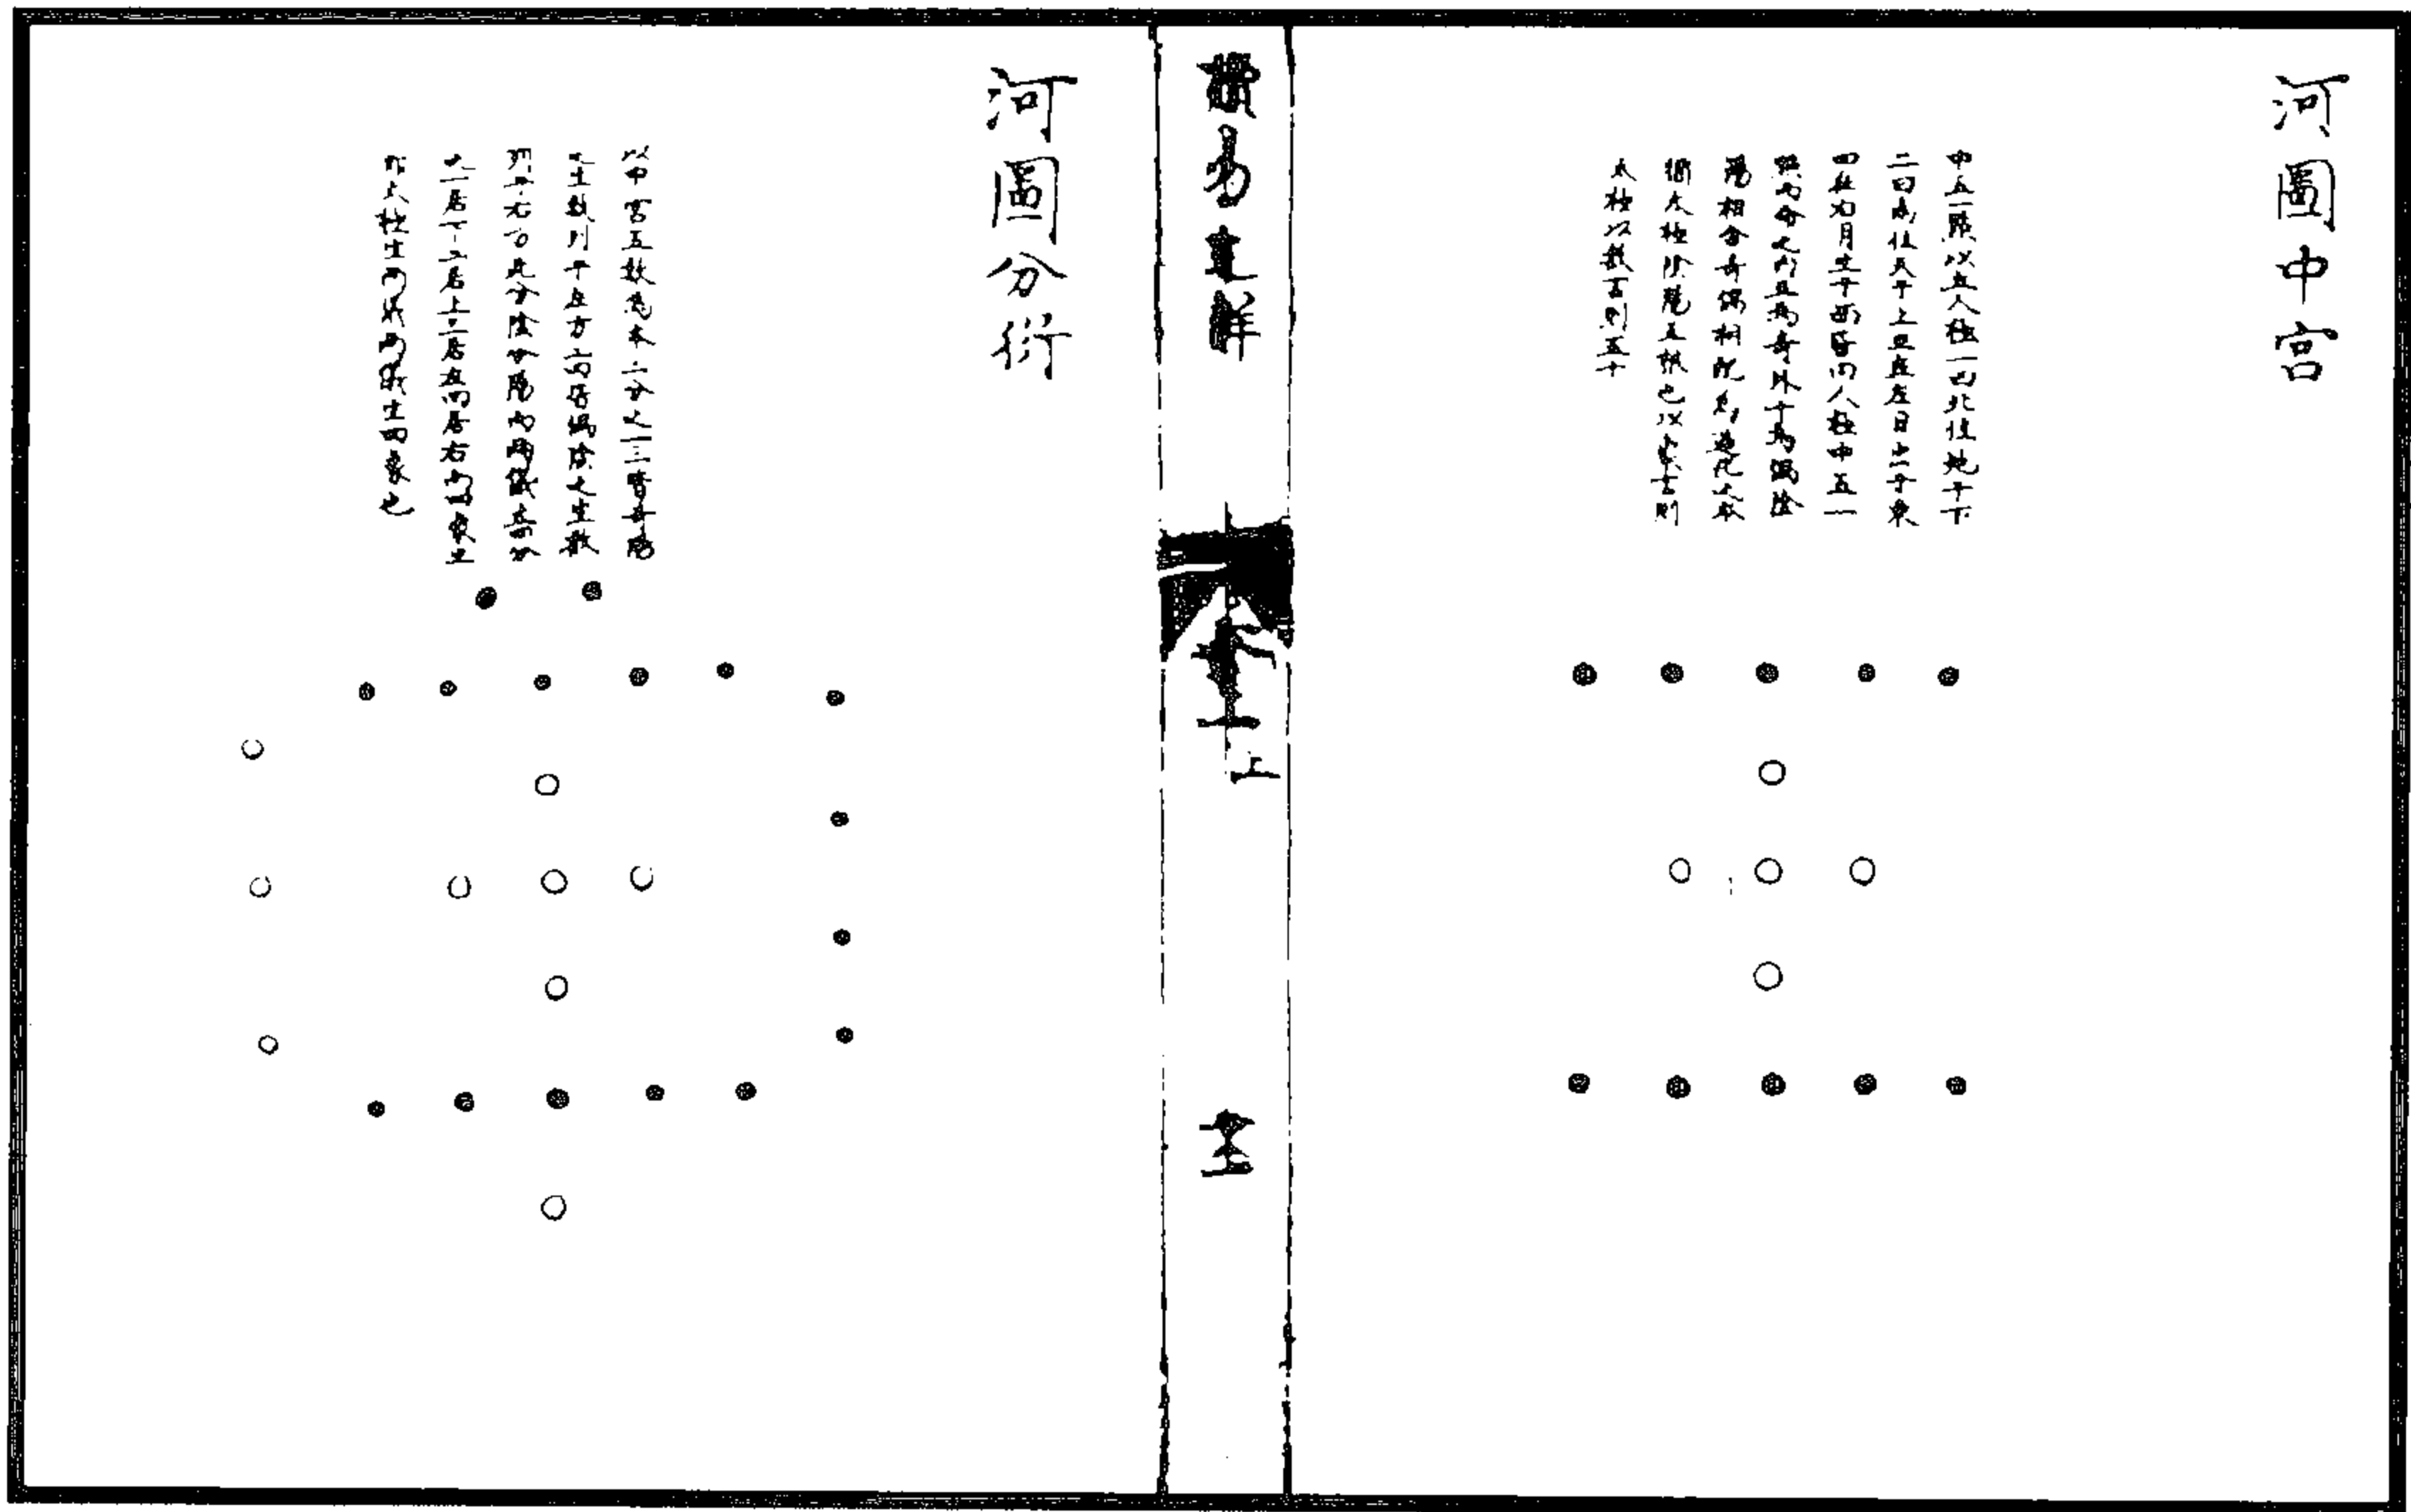 河圖中宮
中五一點以立人極一四北位地于下
二曰南位天于上三在左日生于東
四在右月生于西皆向人極中五一
點而會之內五為奇外十為偶陰
陽相會奇偶相配為造化之本
猶太極陰陽互根也以象言則
太極以數言則五十
易
卷上
上
河圖分衍
以中宮五數為本二分之一三皆奇陽
之生數列于左方二四皆偶陰之生數
列于右方此分陰分陽而兩儀立
一居下二居上三居左四居右而四象生
即太極生兩儀兩儀生四象也